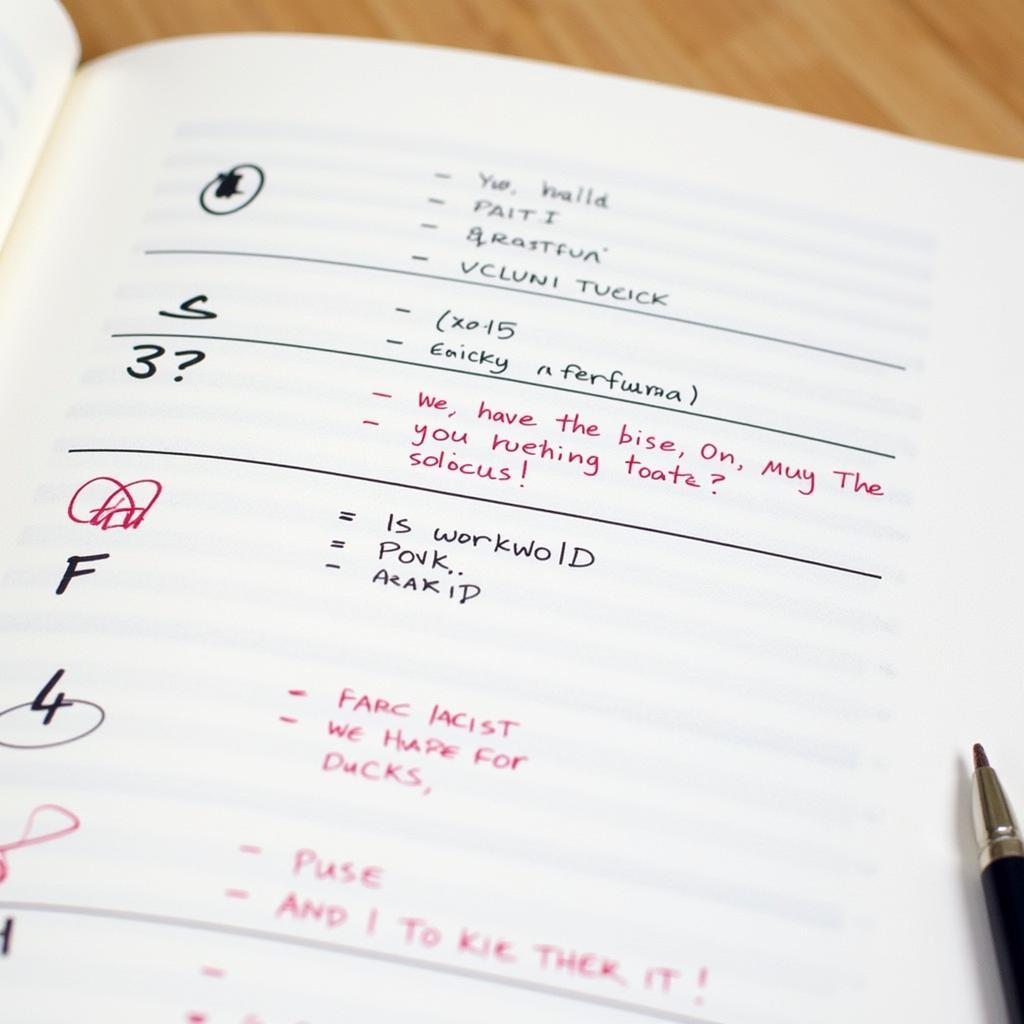 - Yuo. hualld
- PAIT I
- VCLUNI TUEICK
S
- (xo-15
3?
- Eaicky n ferfuma)
- We, have the bise, On, Muy The
- you ruehing toate?
solocus!
= Is workwolD
= Povk..
F
- AraKiD
4
- FARC IACIST
- WE HuAPE FOR
DUCKS,
- PUSE
- AND I TO KIE THEK IT!